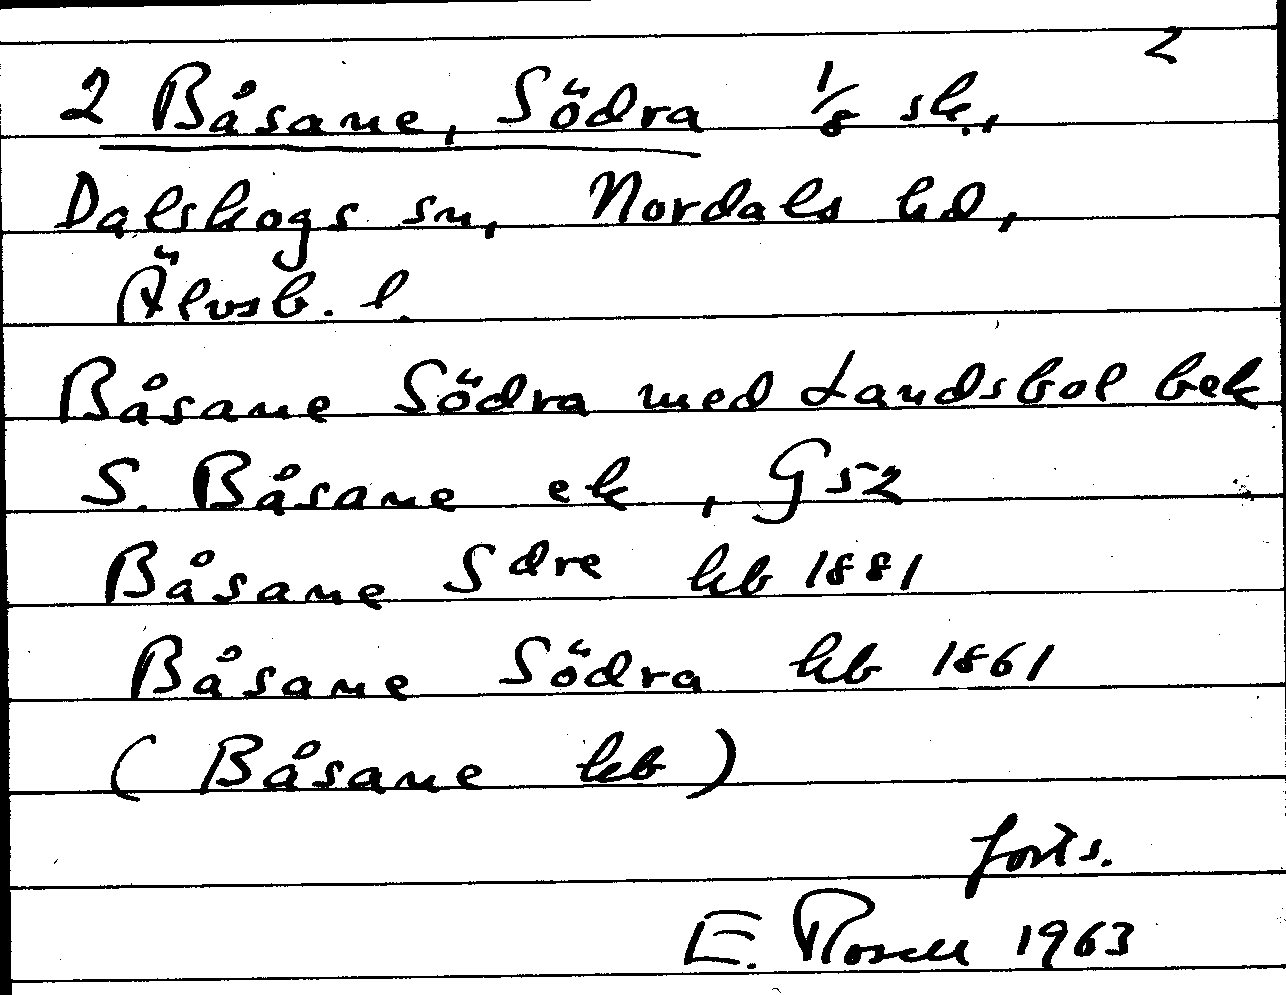 2
2 Båsane, Södra 1/8 sk.,
Dalskogs sn, Nordals hd,
Älvsb. l.
Båsane Södra med Landsbol bek
S. Båsane ek, G52
Båsane Sdre kb 1881
Båsane Södra kb 1861
(Båsane kb)
forts.
E. Rosell 1963